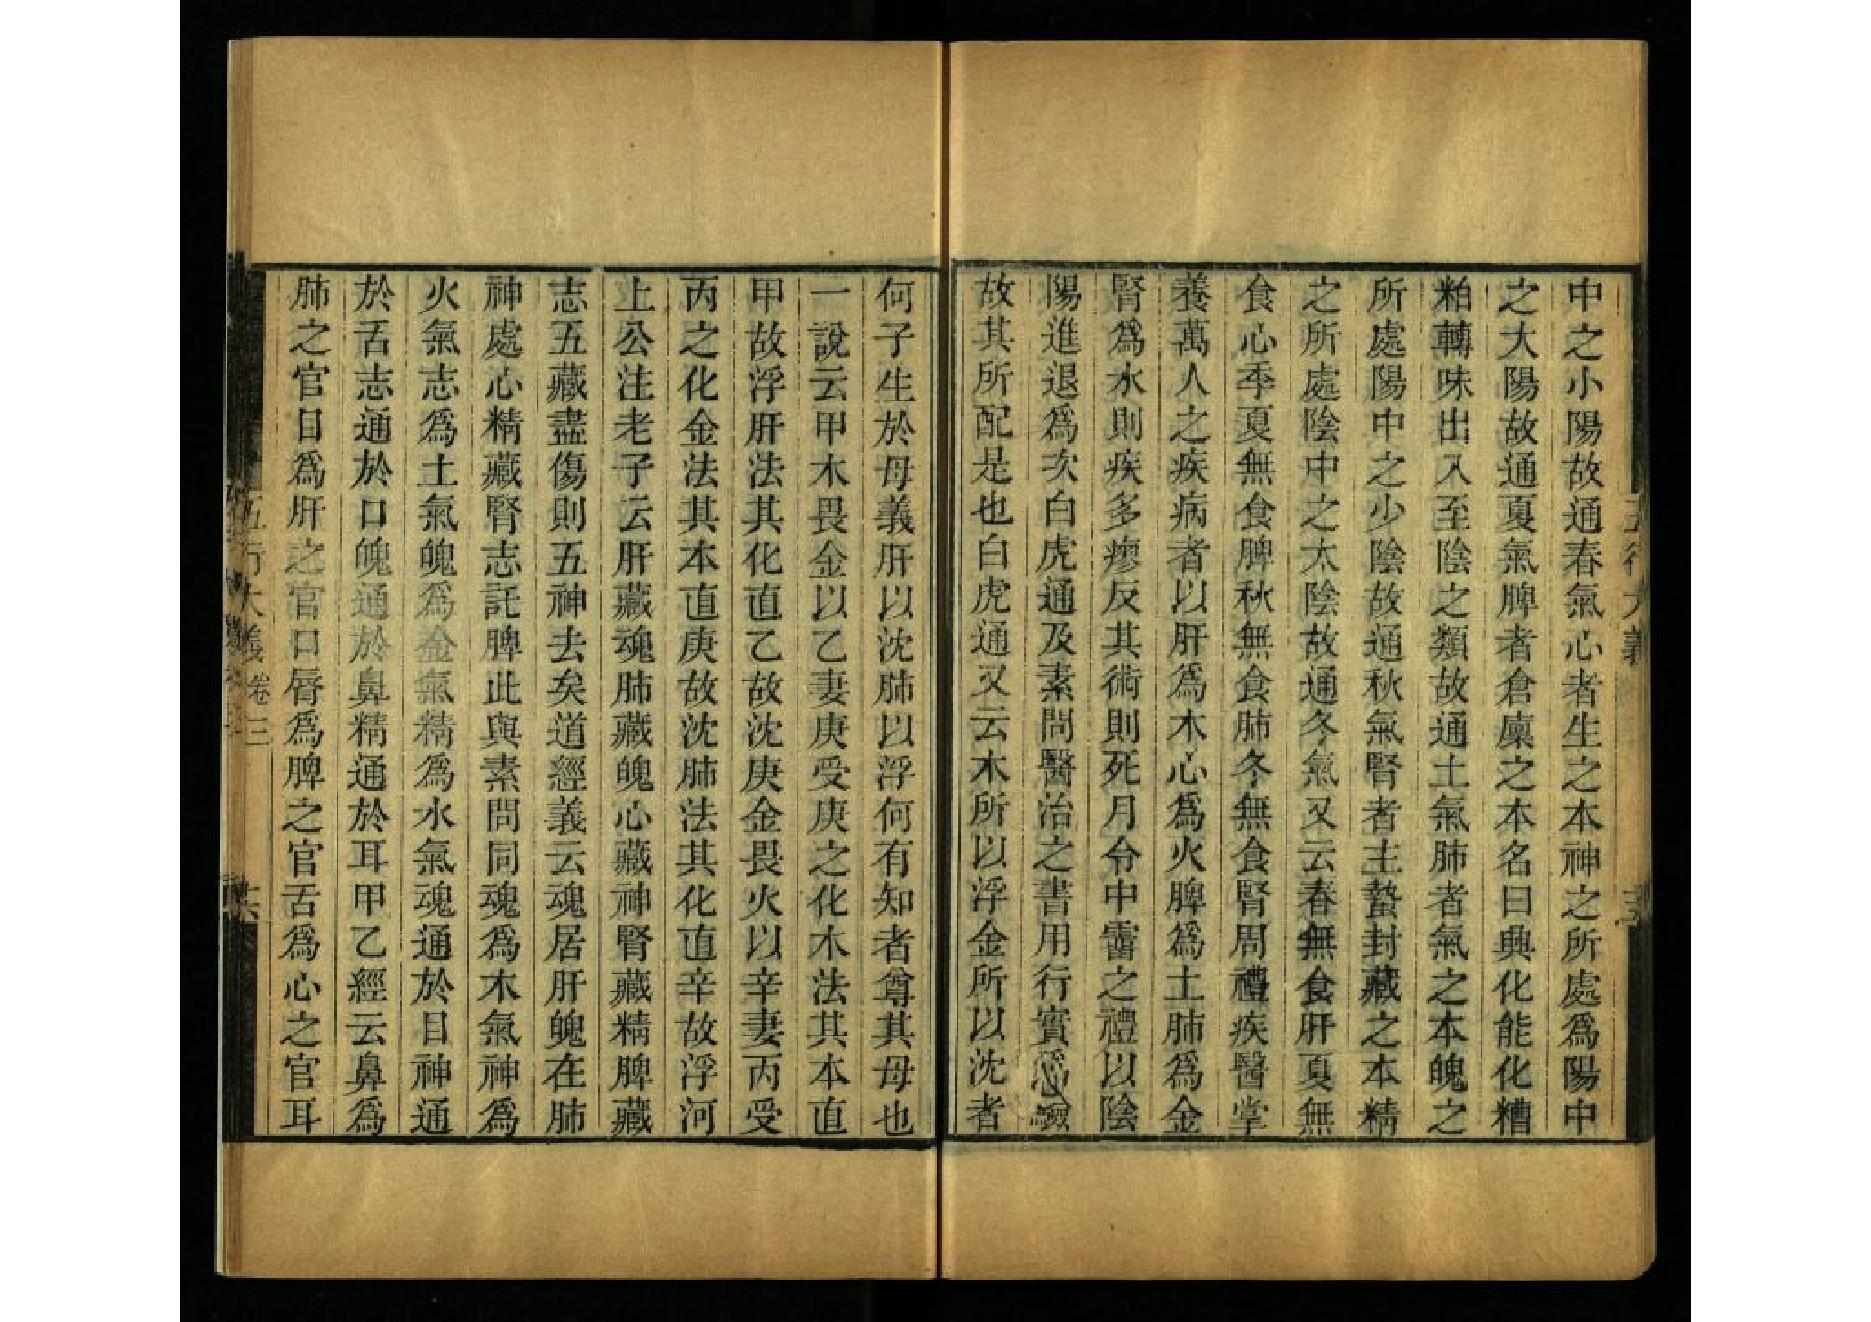 中之小陽故通春氣心者生之本神之所處爲陽中
之大陽故通夏氣脾者倉廩之本名曰典化能化糟
粕轉味出入至陰之類故通土氣肺者氣之本魄之
所處陽中之少陰故通秋氣腎者主蟄封藏之本精
之所處陰中之太陰故通冬氣又云春無食肝夏無
食心季夏無食脾秋無食肺冬無食腎周禮疾醫掌
養萬人之疾病者以肝爲木心爲火脾爲土肺爲金
腎爲水則疾多瘳反其術則死月令中霤之禮以陰
陽進退爲次白虎通及素問醫治之書用行實爲驗
故其所配是也白虎通又云木所以浮金所以沈者
何子生於母義肝以沈肺以浮何有知者尊其母也
一說云甲木畏金以乙妻庚受庚之化木法其本直
甲故浮肝法其化直乙故沈庚金畏火以辛妻丙受
丙之化金法其本直庚故沈肺法其化直辛故浮河
上公注老子云肝藏魂肺藏魄心藏神腎藏精脾藏
志五藏盡傷則五神去矣道經義云魂居肝魄在肺
神處心精藏腎志託脾此與素問同魂爲木氣神爲
火氣志爲土氣魄爲金氣精爲水氣魂通於目神通
於舌志通於口魄通於鼻精通於耳甲乙經云鼻爲
肺之官目爲肝之官口脣爲脾之官舌爲心之官耳
五行大義 卷三